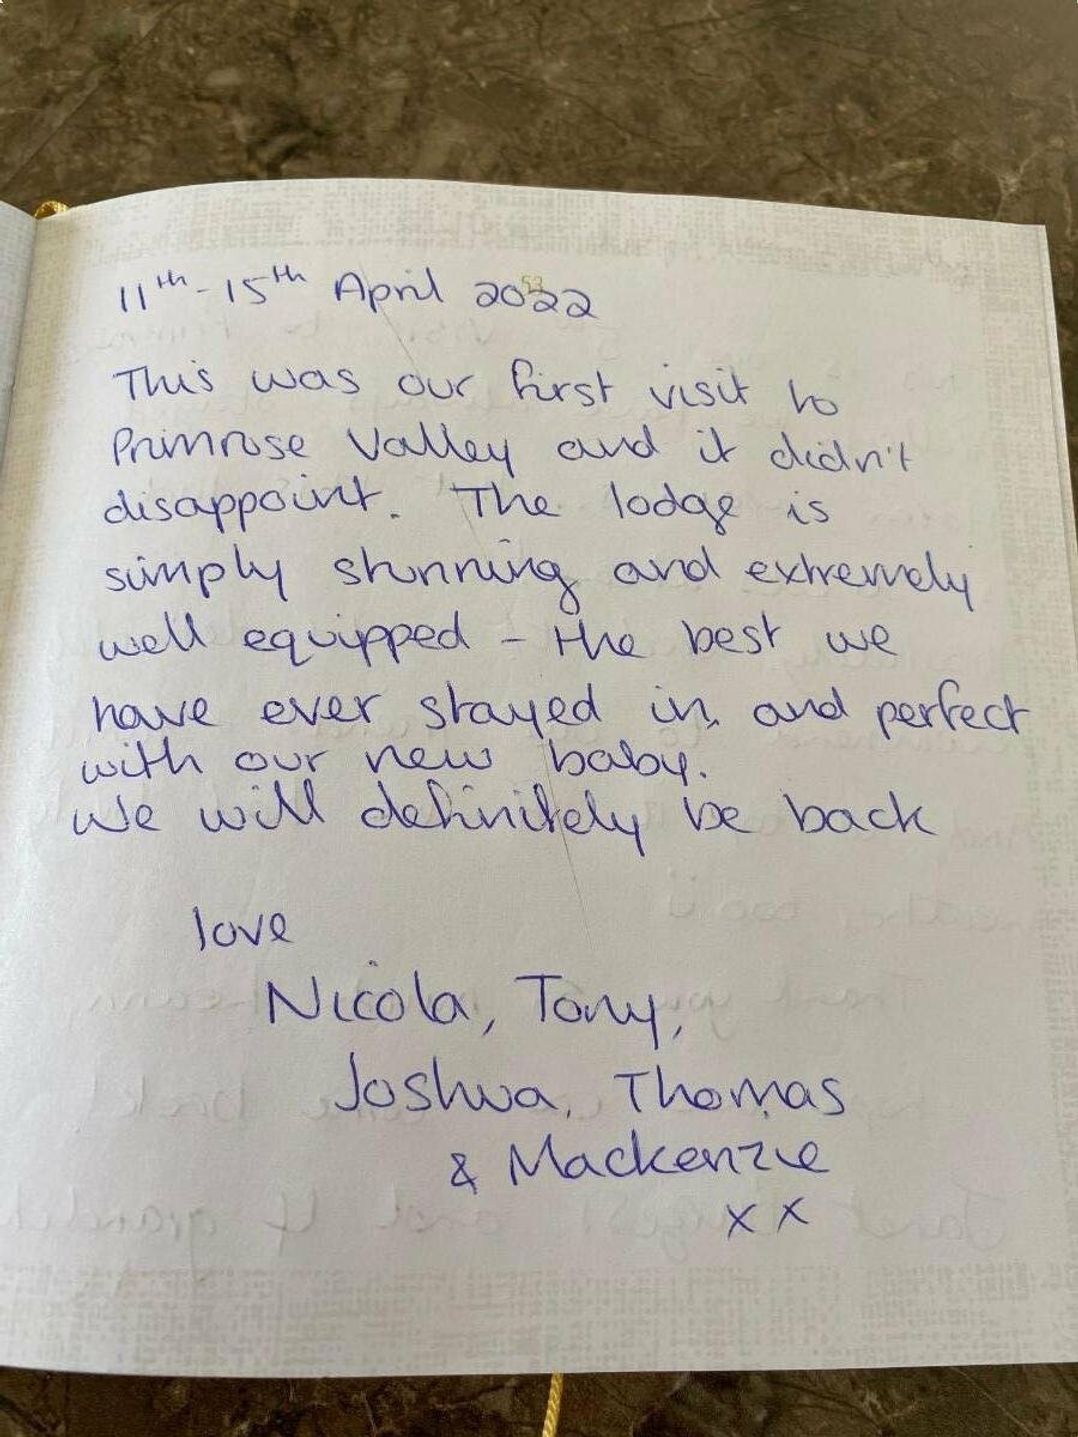 11th - 15th April 2022
This was our first visit to
Primrose Valley and it didn't
disappoint. The lodge is
simply stunning and extremely
well equipped - the best we
have ever stayed in, and perfect
with our new baby.
We will definitely be back
love
Nicola, Tony,
Joshua, Thomas
& Mackenzie
x x